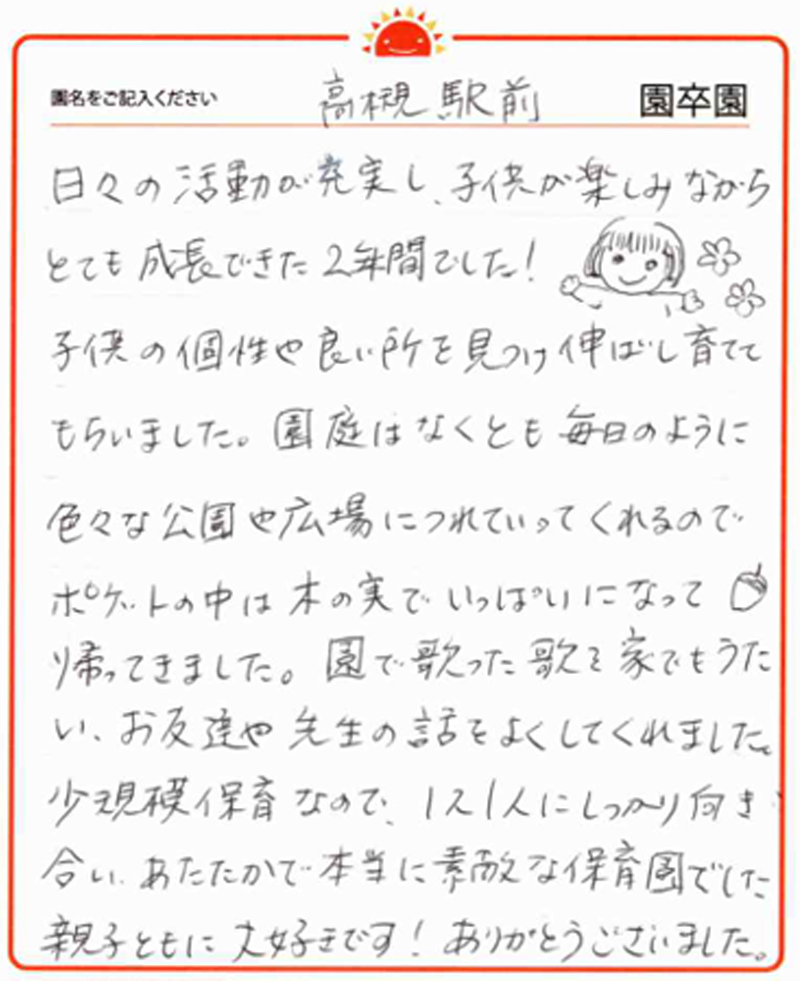 園名をご記入ください 高槻駅前 園卒園
日々の活動が充実し、子供が楽しみながら
とても成長できた2年間でした！
子供の個性や良い所を見つけ伸ばし育てて
もらいました。園庭はなくとも毎日のように
色々な公園や広場につれていってくれるので
ポケットの中は木の実でいっぱいになって
帰ってきました。園で歌った歌を家でもうた
い、お友達や先生の話をよくしてくれました。
少規模保育なので、1人1人にしっかり向き
合い、あたたかで本当に素敵な保育園でした
親子ともに大好きです！ありがとうございました。